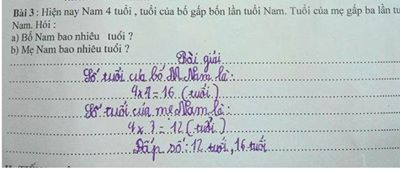 Bài 3 : Hiện nay Nam 4 tuổi , tuổi của bố gấp bốn lần tuổi Nam. Tuổi của mẹ gấp ba lần
Nam. Hỏi :
a) Bố Nam bao nhiêu tuổi ?
b) Mẹ Nam bao nhiêu tuổi ?
Bài giải
Số tuổi của bố Nam là:
4x4=16 (tuổi)
Số tuổi của mẹ Nam là:
4x3=12 (tuổi)
Đáp số: 12 tuổi, 16 tuổi